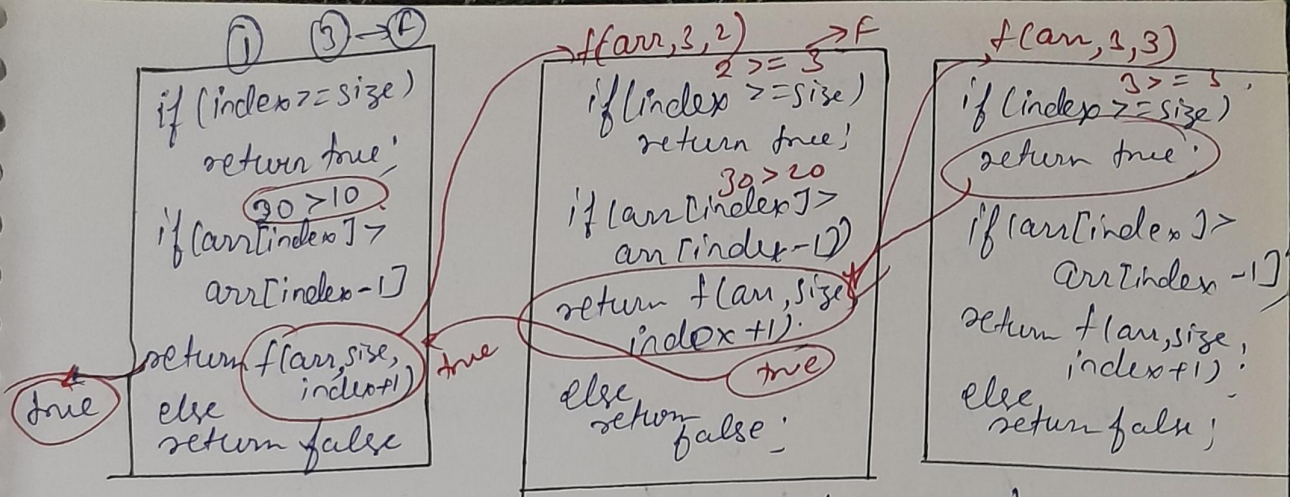 1 3 → F
if (index>=size)
return true;
30 >10
if (arr[index]>
arr[index-1]
return f(arr,size,
index+1)
else
return false
true
true
f(arr,3,2) → F
2 >= 3
if(index >=size)
return true;
30>20
if (arr[index]>
arr[index-1])
return f(arr,size
index+1).
true
else
return
false;
f(arr,3,3)
3>=3,
if (index>=size)
return true;
if (arr[index]>
arr[index-1]
return f(arr,size,
index+1);
else
return false;